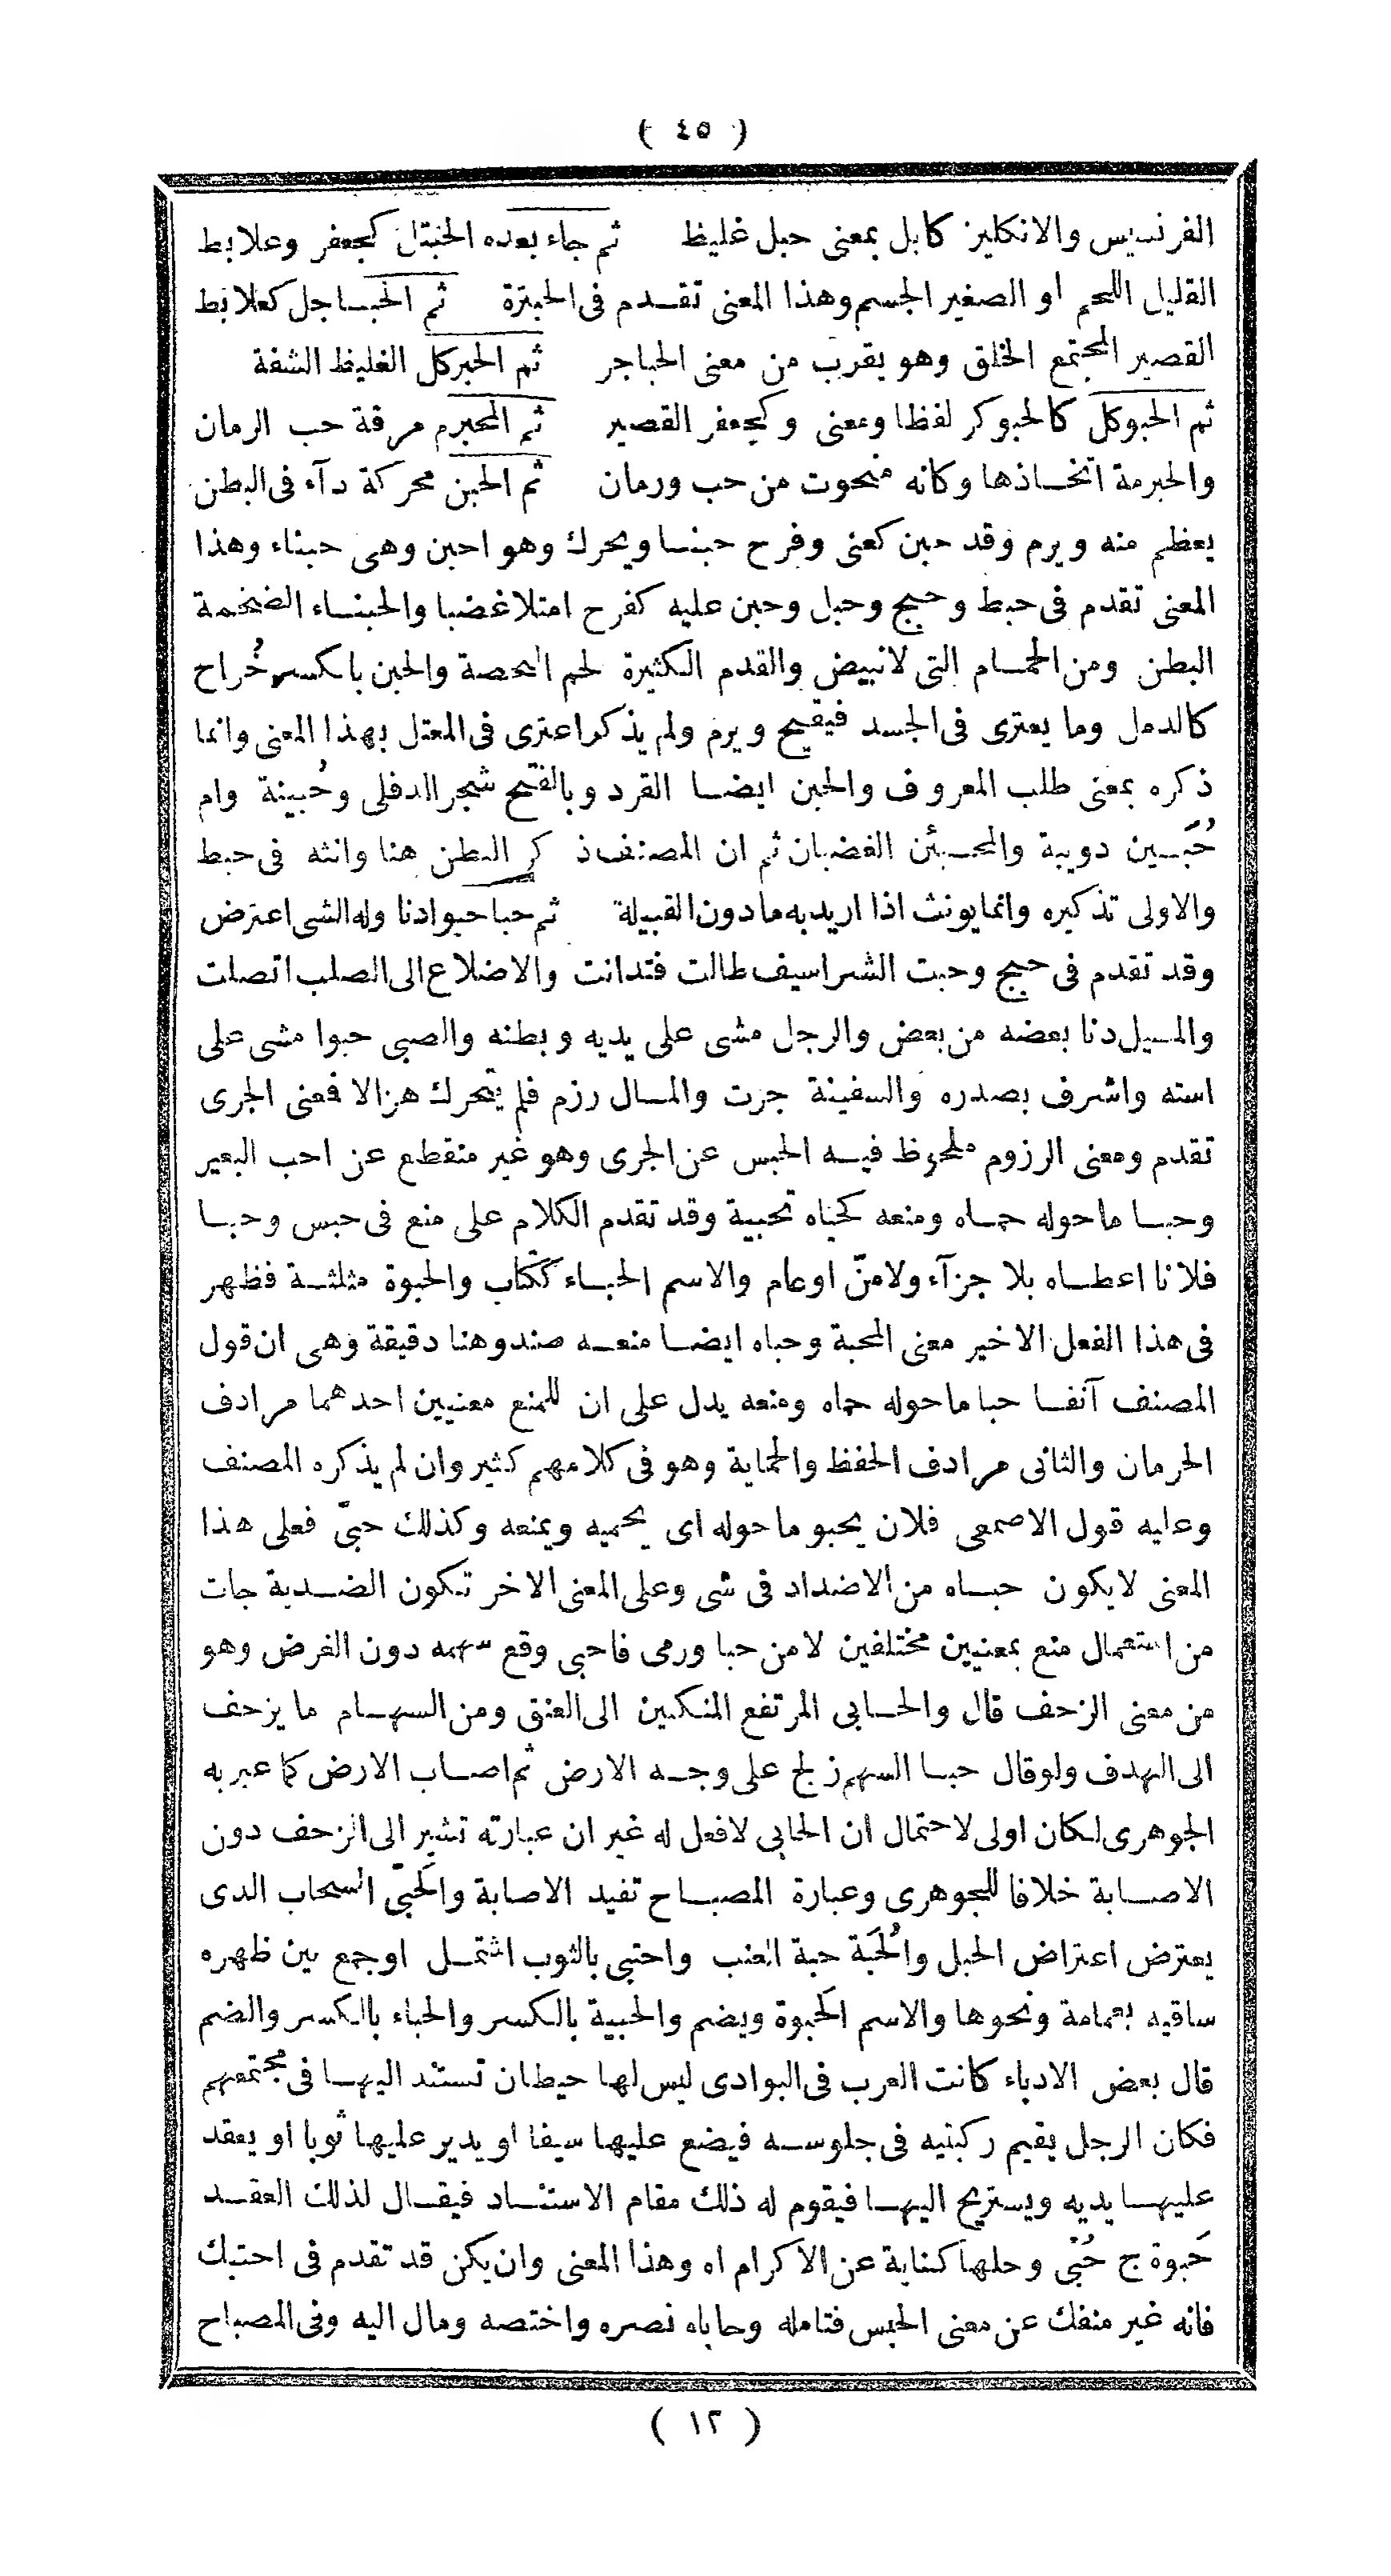 ( ٤٥ )
الفرنسيس والانكليز كابل بمعنى حبل غليظ ثم جاء بعده الحنبتل كجعفر وعلابط
القليل اللحم او الصغير الجسم وهذا المعنى تقدم فى الحبترة ثم الحباجل كعلابط
القصير المجتمع الخلق وهو يقرب من معنى الحباجر ثم الحبركل الغليظ الشفة
ثم الحبوكل كالحبوكر لفظا ومعنى وكجعفر القصير ثم المحبرم مرقة حب الرمان
والحبرمة اتخاذها وكانه منحوت من حب ورمان ثم الحبن محركة دآء فى البطن
يعظم منه ويرم وقد حبن كعنى وفرح حبنا ويحرك وهو احبن وهى حبناء وهذا
المعنى تقدم فى حبط وحبج وحبل وحبن عليه كفرح امتلا غضبا والحبناء الضخمة
البطن ومن الحمام التى لا تبيض والقدم الكثيرة لحم البخصة والحبن بالكسر خُراح
كالدمل وما يعترى فى الجسد فيقيح ويرم ولم يذكر اعترى فى المعتل بهذا المعنى وانما
ذكره بمعنى طلب المعروف والحبن ايضا القرد وبالفتح شجر الدفلى وحُبينة وام
حُبَين دويبة والمحبئن الغضبان ثم ان المصنف ذكر البطن هنا وانثه فى حبط
والاولى تذكيره وانما يونث اذا اريد به ما دون القبيلة ثم حبا حبوا دنا وله الشى اعترض
وقد تقدم فى حبج وحبت الشراسيف طالت فتدانت والاضلاع الى الصلب اتصلت
والمسيل دنا بعضه من بعض والرجل مشى على يديه وبطنه والصبى حبوا مشى على
استه واشرف بصدره والسفينة جرت والمال رزم فلم يتحرك هزالا فمعنى الجرى
تقدم ومعنى الرزوم ملحوظ فيه الحبس عن الجرى وهو غير منقطع عن احب البعير
وحبا ما حوله حماه ومنعه كحباه تحبية وقد تقدم الكلام على منع فى حبس وحبا
فلانا اعطاه بلا جزآء ولا منّ او عام والاسم الحباء ككتاب والحبوة مثلثة فظهر
فى هذا الفعل الاخير معنى المحبة وحباه ايضا منعه ضد وهنا دقيقة وهى ان قول
المصنف آنفا حبا ما حوله حماه ومنعه يدل على ان للمنع معنيين احدهما مرادف
الحرمان والثانى مرادف الحفظ والحماية وهو فى كلامهم كثير وان لم يذكره المصنف
وعليه قول الاصمعى فلان يحبو ما حوله اى يحميه ويمنعه وكذلك حبىّ فعلى هذا
المعنى لا يكون حباه من الاضداد فى شى وعلى المعنى الاخر تكون الضدية جات
من استعمال منع بمعنيين مختلفين لا من حبا ورمى فاحبى وقع سهمه دون الغرض وهو
من معنى الزحف قال والحابى المرتفع المنكبين الى العنق ومن السهام ما يزحف
الى الهدف ولو قال حبا السهم زلج على وجه الارض ثم اصاب الارض كما عبر به
الجوهرى لكان اولى لاحتمال ان الحابى لا فعل له غير ان عبارته تشير الى الزحف دون
الاصابة خلافا للجوهرى وعبارة المصباح تفيد الاصابة والحَبىّ السحاب الدى
يعترض اعتراض الجبل والحُبَة حبة العنب واحتبى بالثوب اشتمل او جمع بين ظهره
ساقيه بعمامة ونحوها والاسم الحَبوة ويضم والحبية بالكسر والحباء بالكسر والضم
قال بعض الادباء كانت العرب فى البوادى ليس لها حيطان تستند اليها فى مجتمعهم
فكان الرجل يقيم ركبتيه فى جلوسه فيضع عليها سيفا او يدير عليها ثوبا او يعقد
عليها يديه ويستريح اليها فيقوم له ذلك مقام الاستناد فيقال لذلك العقد
حَبوة ج حُبًى وحلها كناية عن الاكرام اه وهذا المعنى وان يكن قد تقدم فى احتبك
فانه غير منفك عن معنى الحبس فتامله وحاباه نصره واختصه ومال اليه وفى المصباح
( ١٢ )